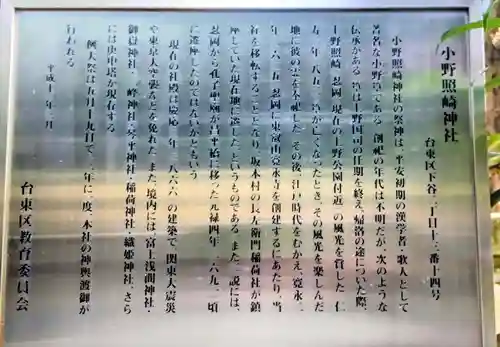 小野照崎神社
台東区下谷二丁目十三番十四号
小野照崎神社の祭神は、平安初期の漢学者・歌人として
著名な小野篁である。創祀の年代は不明だが、次のような
伝承がある。篁は上野国司の任期を終え、帰洛の途についた際、
上野照崎(忍岡=現在の上野公園付近)の風光を賞した。仁
寿二年(八五二)、篁が亡くなったとき、その風光を楽しんだ
地に彼の霊を奉祀した。その後、江戸時代をむかえ、寛永二
年(一六二五)、忍岡に東叡山寛永寺を創建するにあたり、当
社を移転することとなり、坂本村の長左衛門稲荷社が鎮
座していた現在地に遷した、というものである。また一説には、
忍岡から孔子聖廟が昌平橋に移った元禄四年(一六九一)頃
に遷座したのではないかともいう。
現在の社殿は慶応二年(一八六六)の建築で、関東大震災
や東京大空襲などを免れた。また、境内には、富士浅間神社・
御嶽神社・三峰神社・琴平神社・稲荷神社・織姫神社、さら
には庚申塔が現存する。
例大祭は五月十九日で、三年に一度、本社の神輿渡御が
行われる。
平成十一年三月
台東区教育委員会